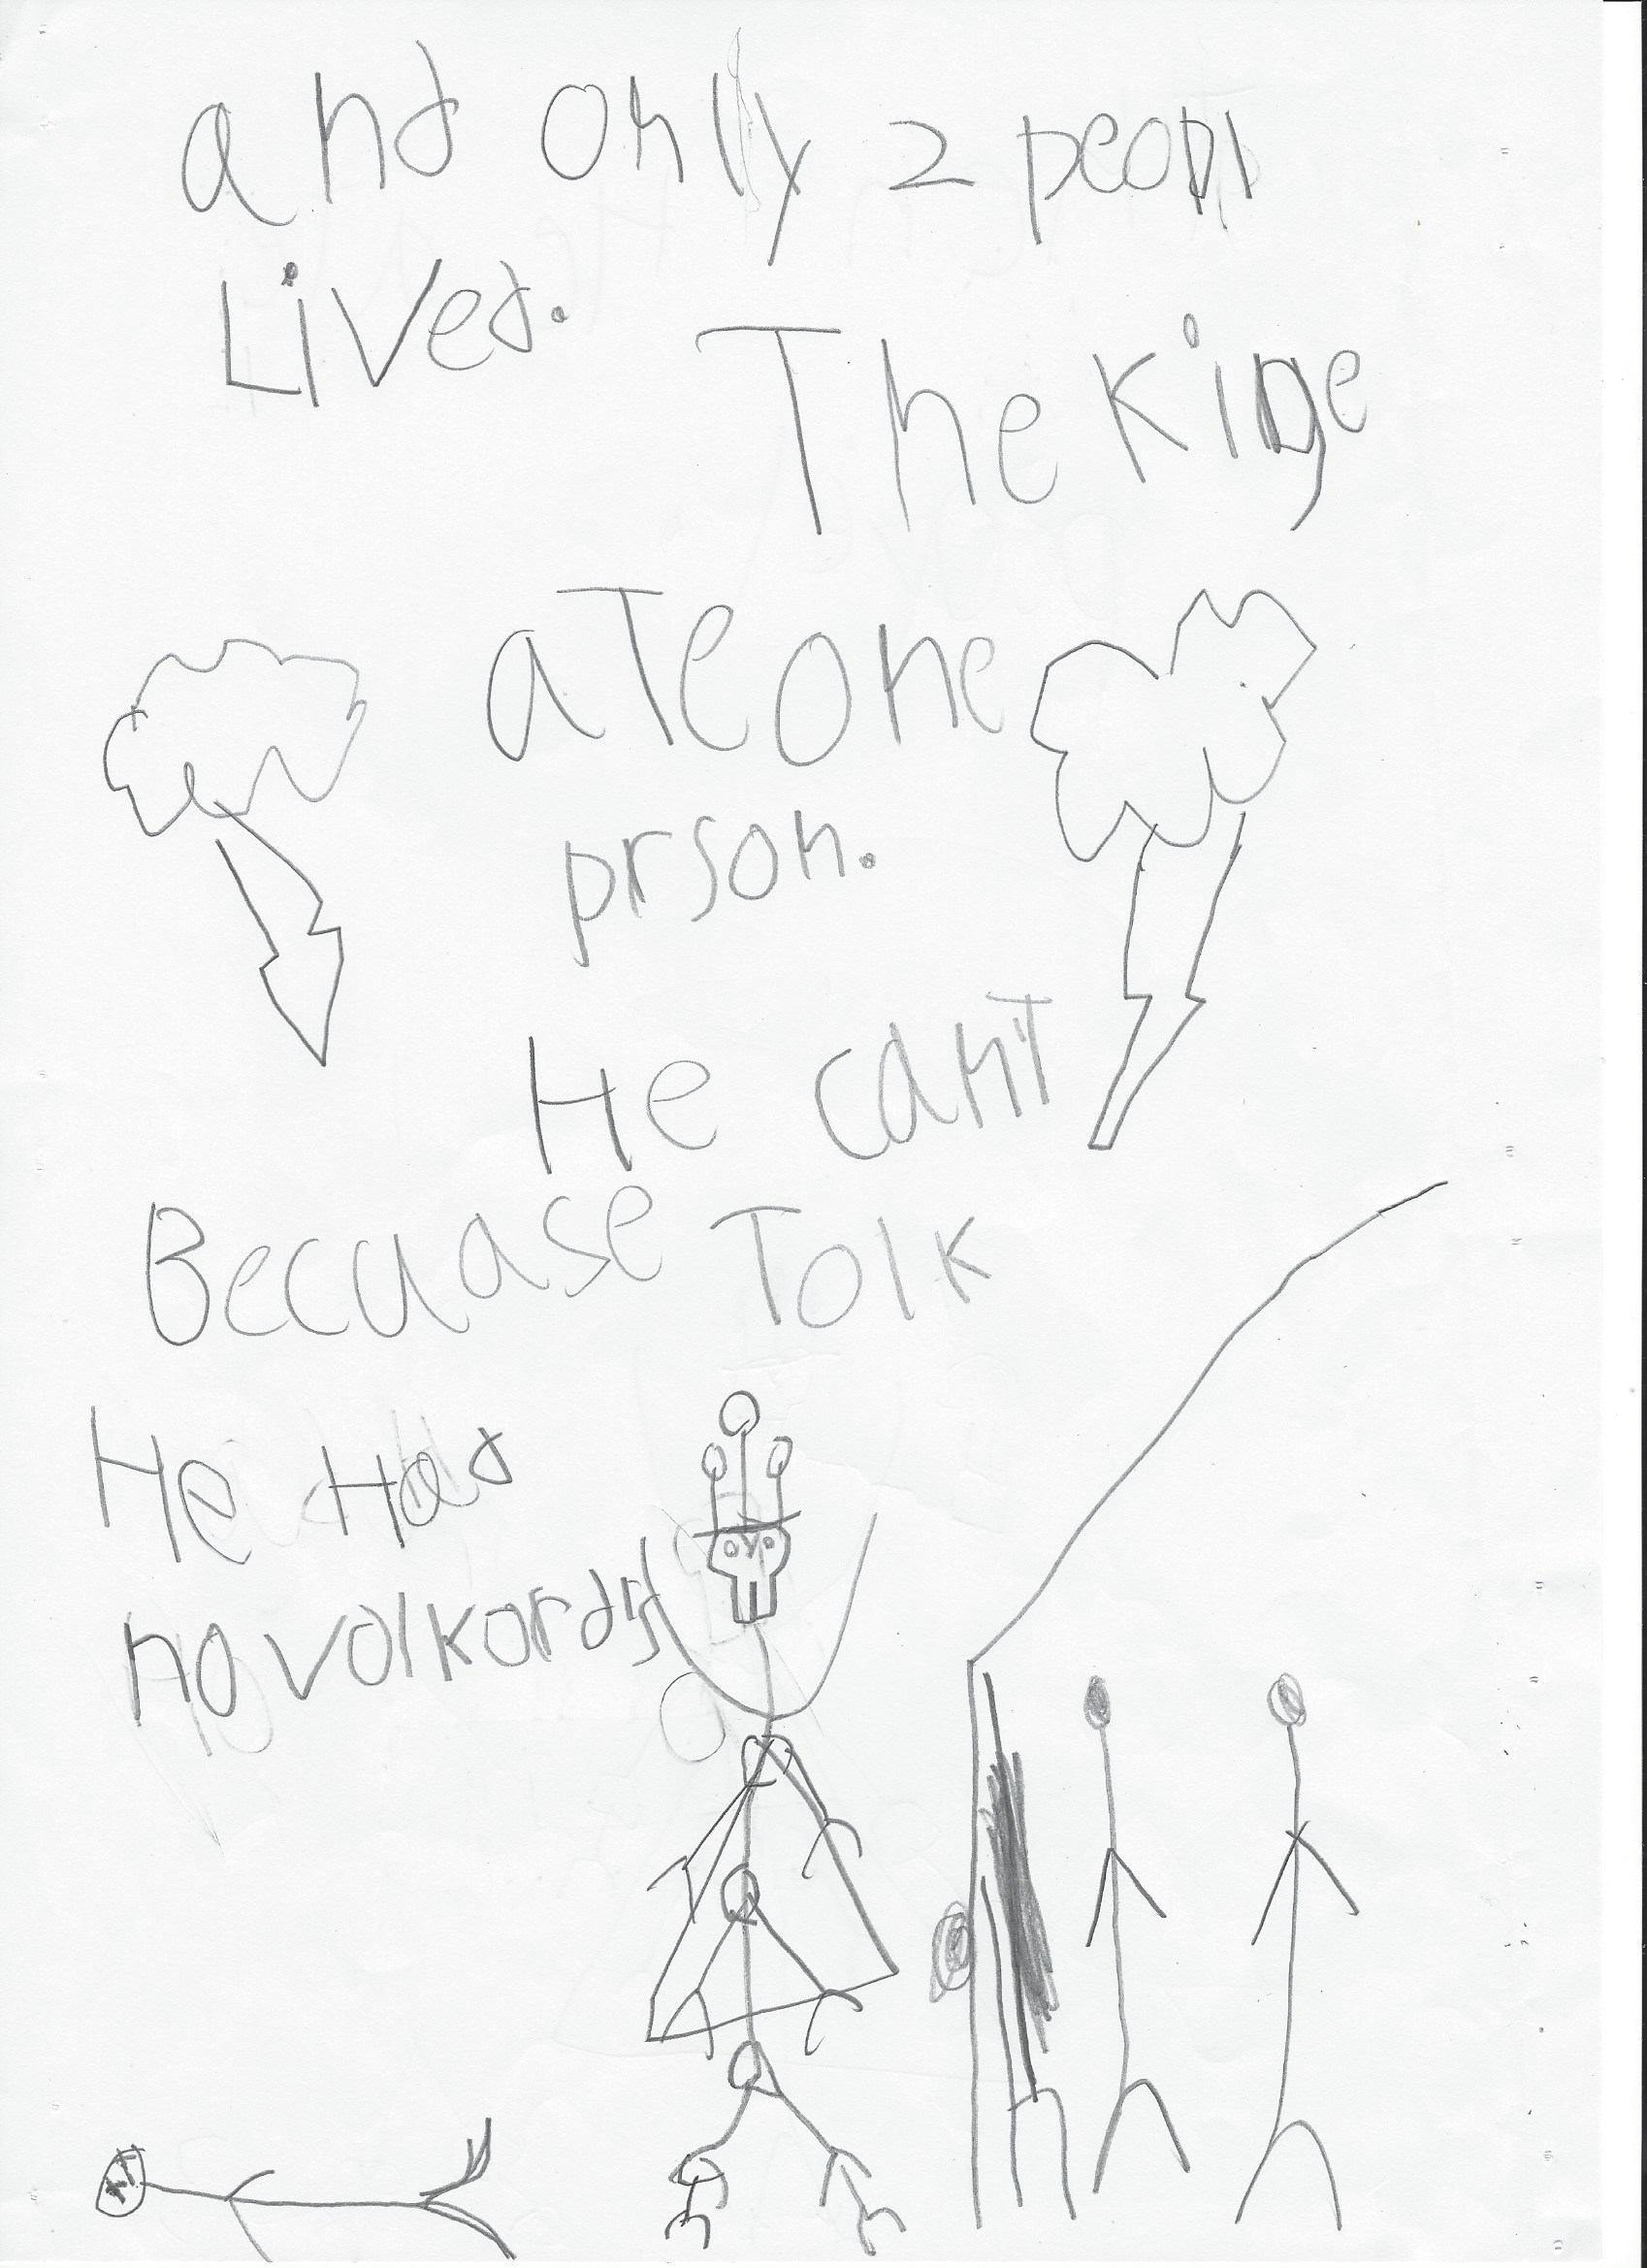 and only 2 peopl
Lived.
The kinge
aTe one
prson.
He can'T
Becuase Tolk
He Had
no volkords